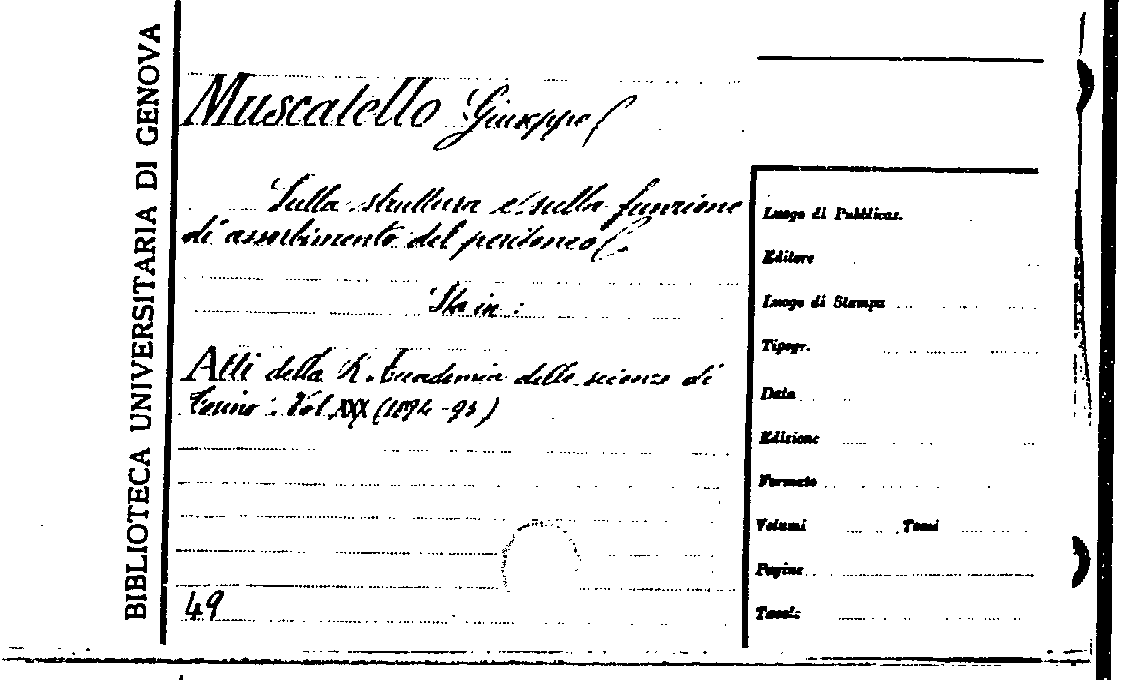 BIBLIOTECA UNIVERSITARIA DI GENOVA
Muscatello Giuseppe
Sulla struttura e sulla funzione
di assorbimento del peritoneo.
Sta in:
Atti della R. Accademia delle scienze di
Torino. Vol. XXX (1894-95)
49
Luogo di Pubblicaz.
Editore
Luogo di Stampa
Tipogr.
Data
Edizione
Formato
Volumi Tomi
Pagine
Tavole